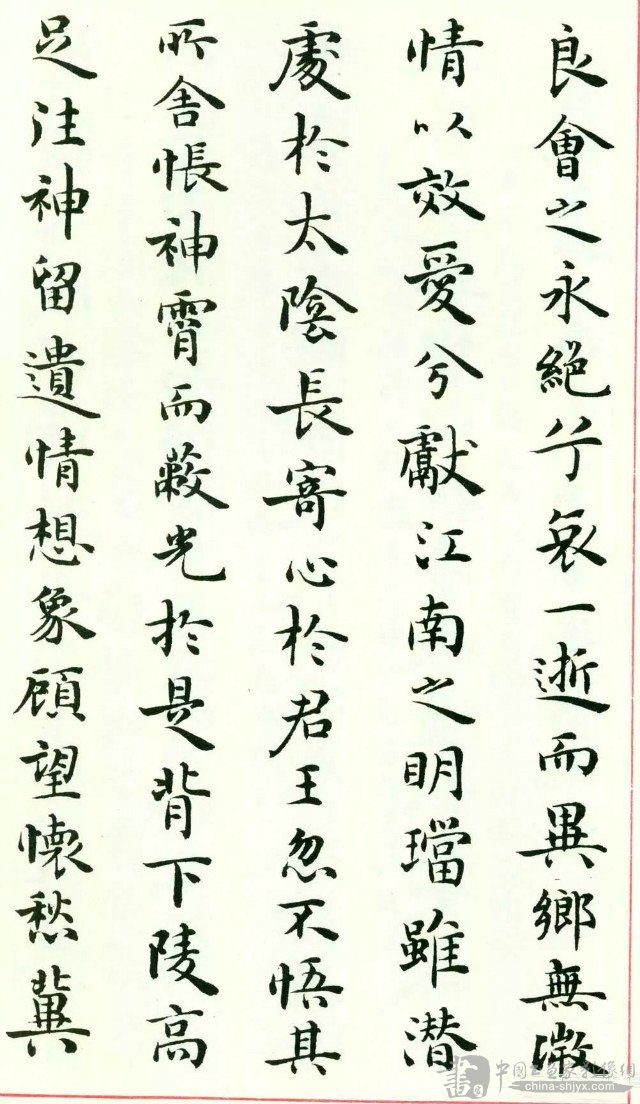 良會之永絕兮哀一逝而異鄉無微
情以效愛兮獻江南之明璫雖潛
處於太陰長寄心於君王忽不悟其
所舍悵神霄而蔽光於是背下陵高
足往神留遺情想象顧望懷愁冀
china-shjyx.com